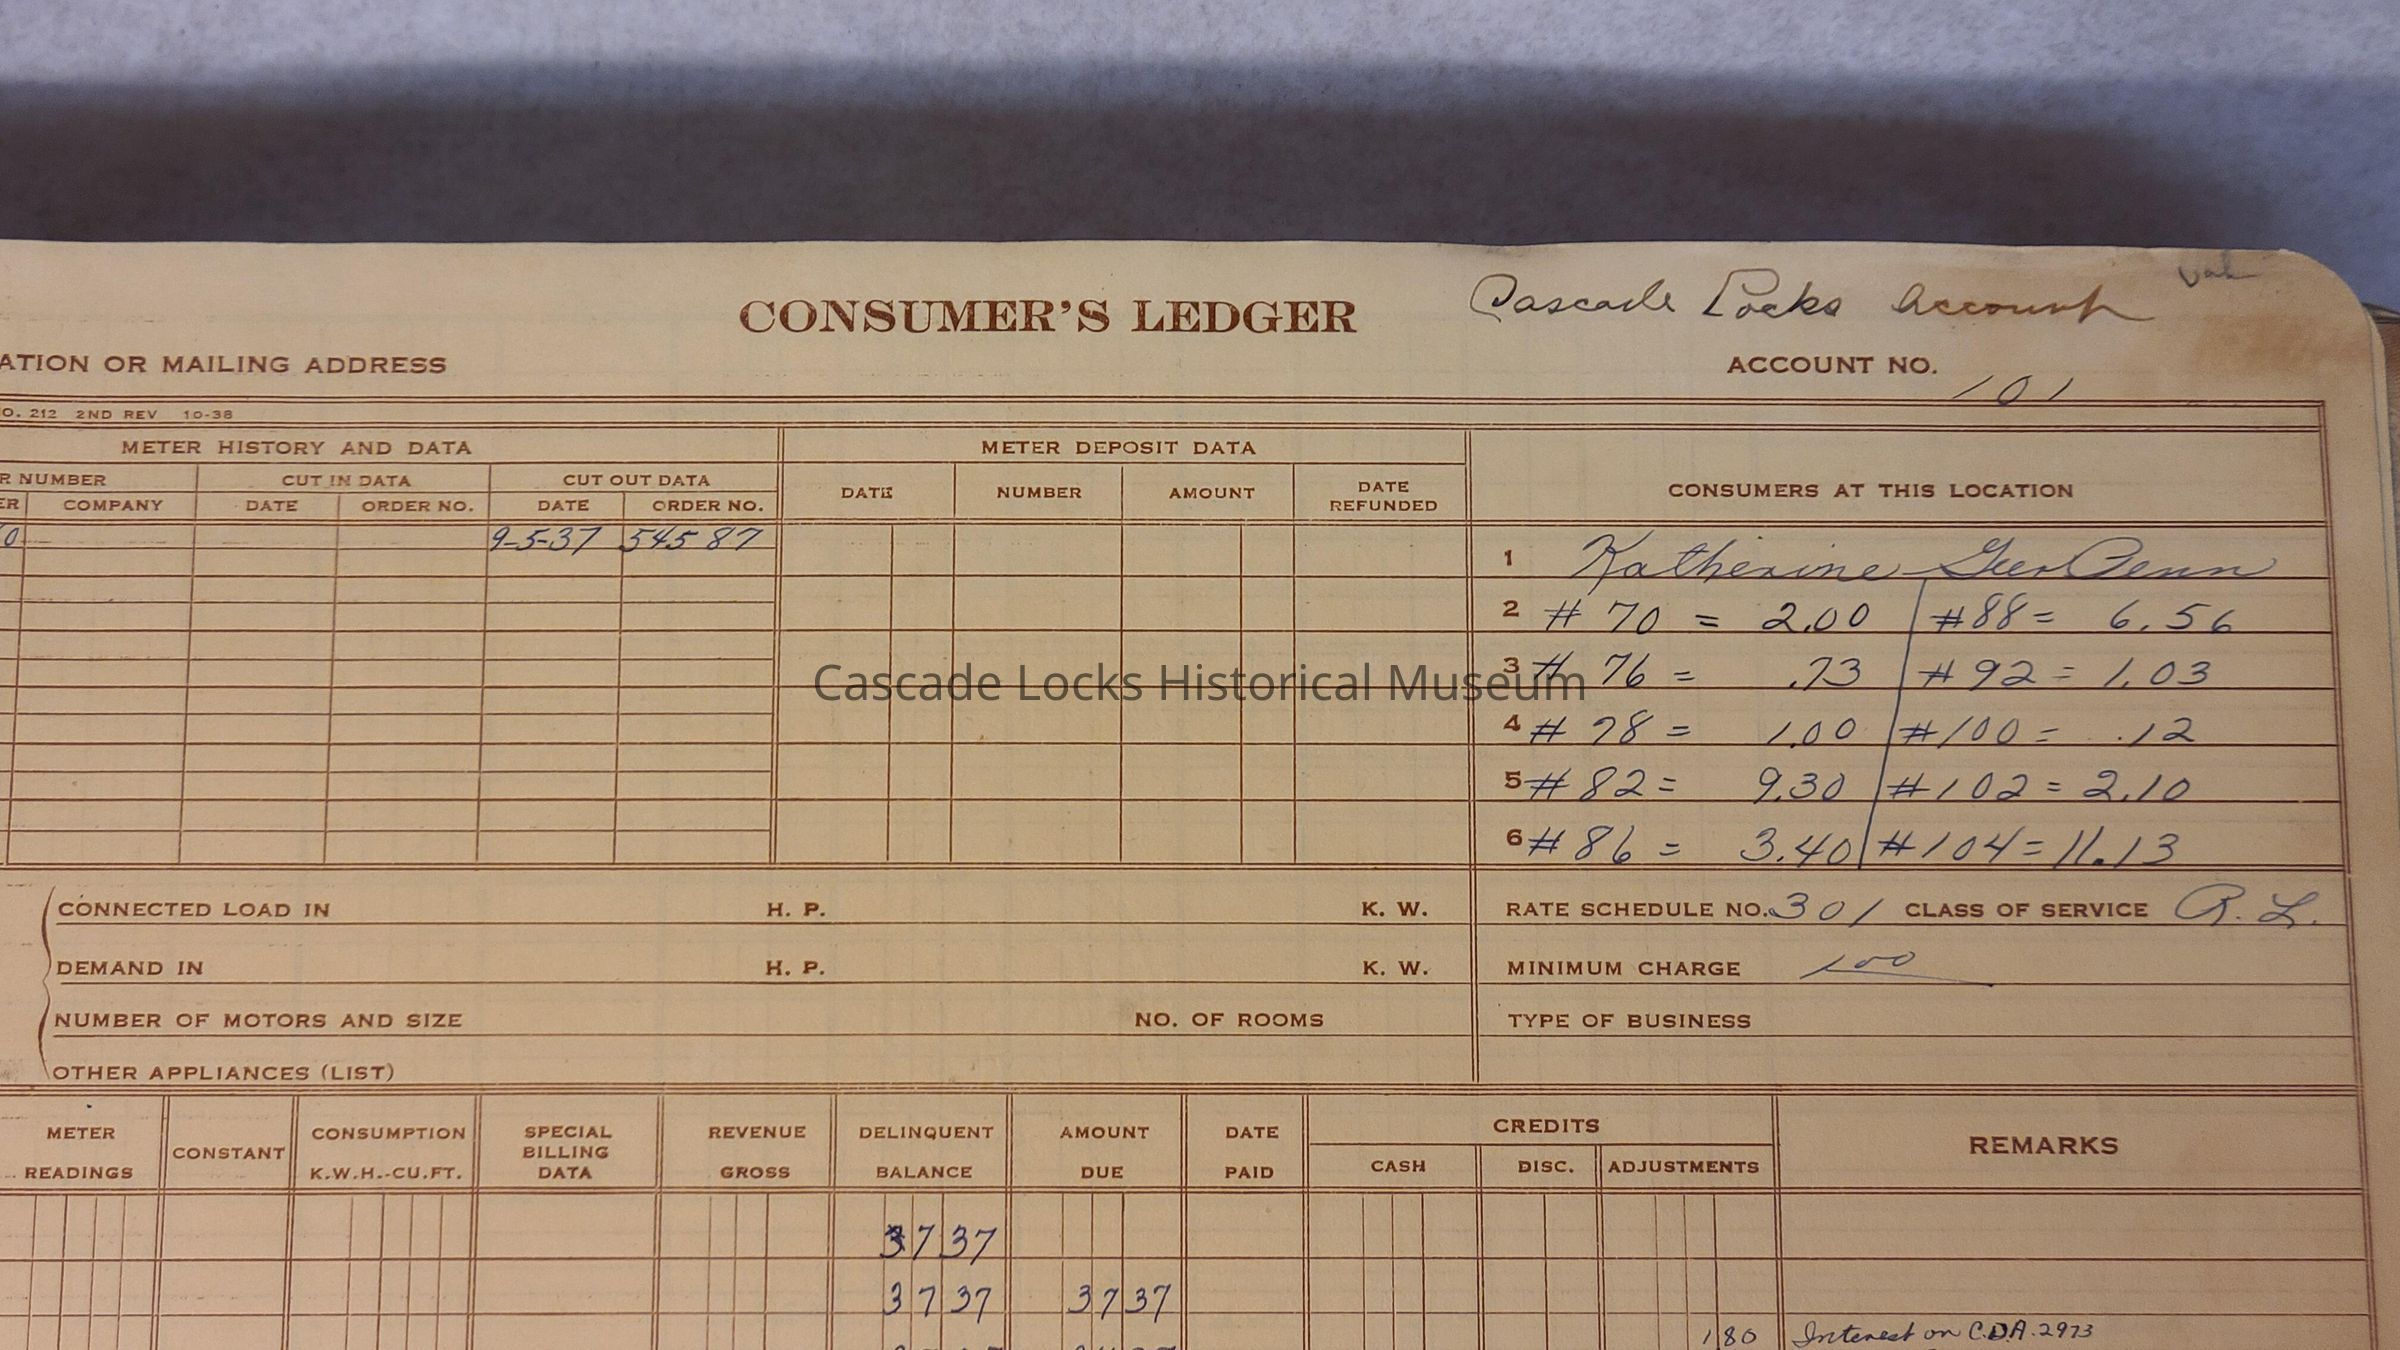 CONSUMER'S LEDGER
Cascade Locks Account
ATION OR MAILING ADDRESS
ACCOUNT NO. 101
O. 212 2ND REV 10-38
METER HISTORY AND DATA
METER DEPOSIT DATA
CONSUMERS AT THIS LOCATION
R NUMBER CUT IN DATA CUT OUT DATA
DATE NUMBER AMOUNT DATE REFUNDED
ER COMPANY DATE ORDER NO. DATE ORDER NO.
0 9-5-37 54587
1 Katherine Penn
2 # 70 = 2.00 #88 = 6.56
3 # 76 = .73 # 92 = 1.03
4 # 78 = 1.00 #100 = .12
5 # 82 = 9.30 #102 = 2.10
6 # 86 = 3.40 #104 = 11.13
Cascade Locks Historical Museum
CONNECTED LOAD IN H. P. K. W.
RATE SCHEDULE NO. 301 CLASS OF SERVICE R. L.
DEMAND IN H. P. K. W.
MINIMUM CHARGE 100
NUMBER OF MOTORS AND SIZE NO. OF ROOMS
TYPE OF BUSINESS
OTHER APPLIANCES (LIST)
METER READINGS CONSTANT CONSUMPTION K.W.H.-CU.FT. SPECIAL BILLING DATA REVENUE GROSS DELINQUENT BALANCE AMOUNT DUE DATE PAID CREDITS REMARKS
CASH DISC. ADJUSTMENTS
37 37
37 37 37 37
1 80 Interest on C.D.A. 2973